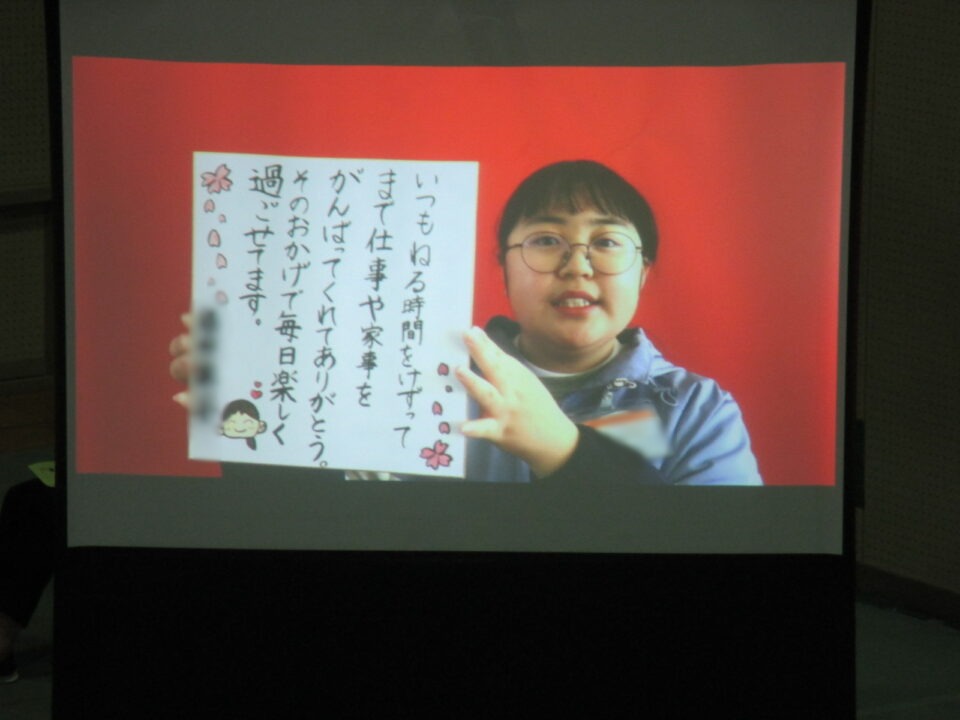 いつもねる時間をけずって
まで仕事や家事を
がんばってくれてありがとう。
そのおかげで毎日楽しく
過ごせてます。